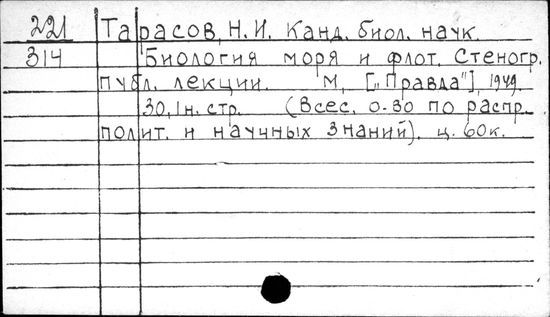 221 Тарасов, Н.И. Канд. биол. наук.
314 Биология моря и флот. Стеногр.
публ. лекции. М, [„Правда"], 1949.
30, 1н. стр. (Всес. о-во по распр.
полит. и научных знаний). ц. 60к.